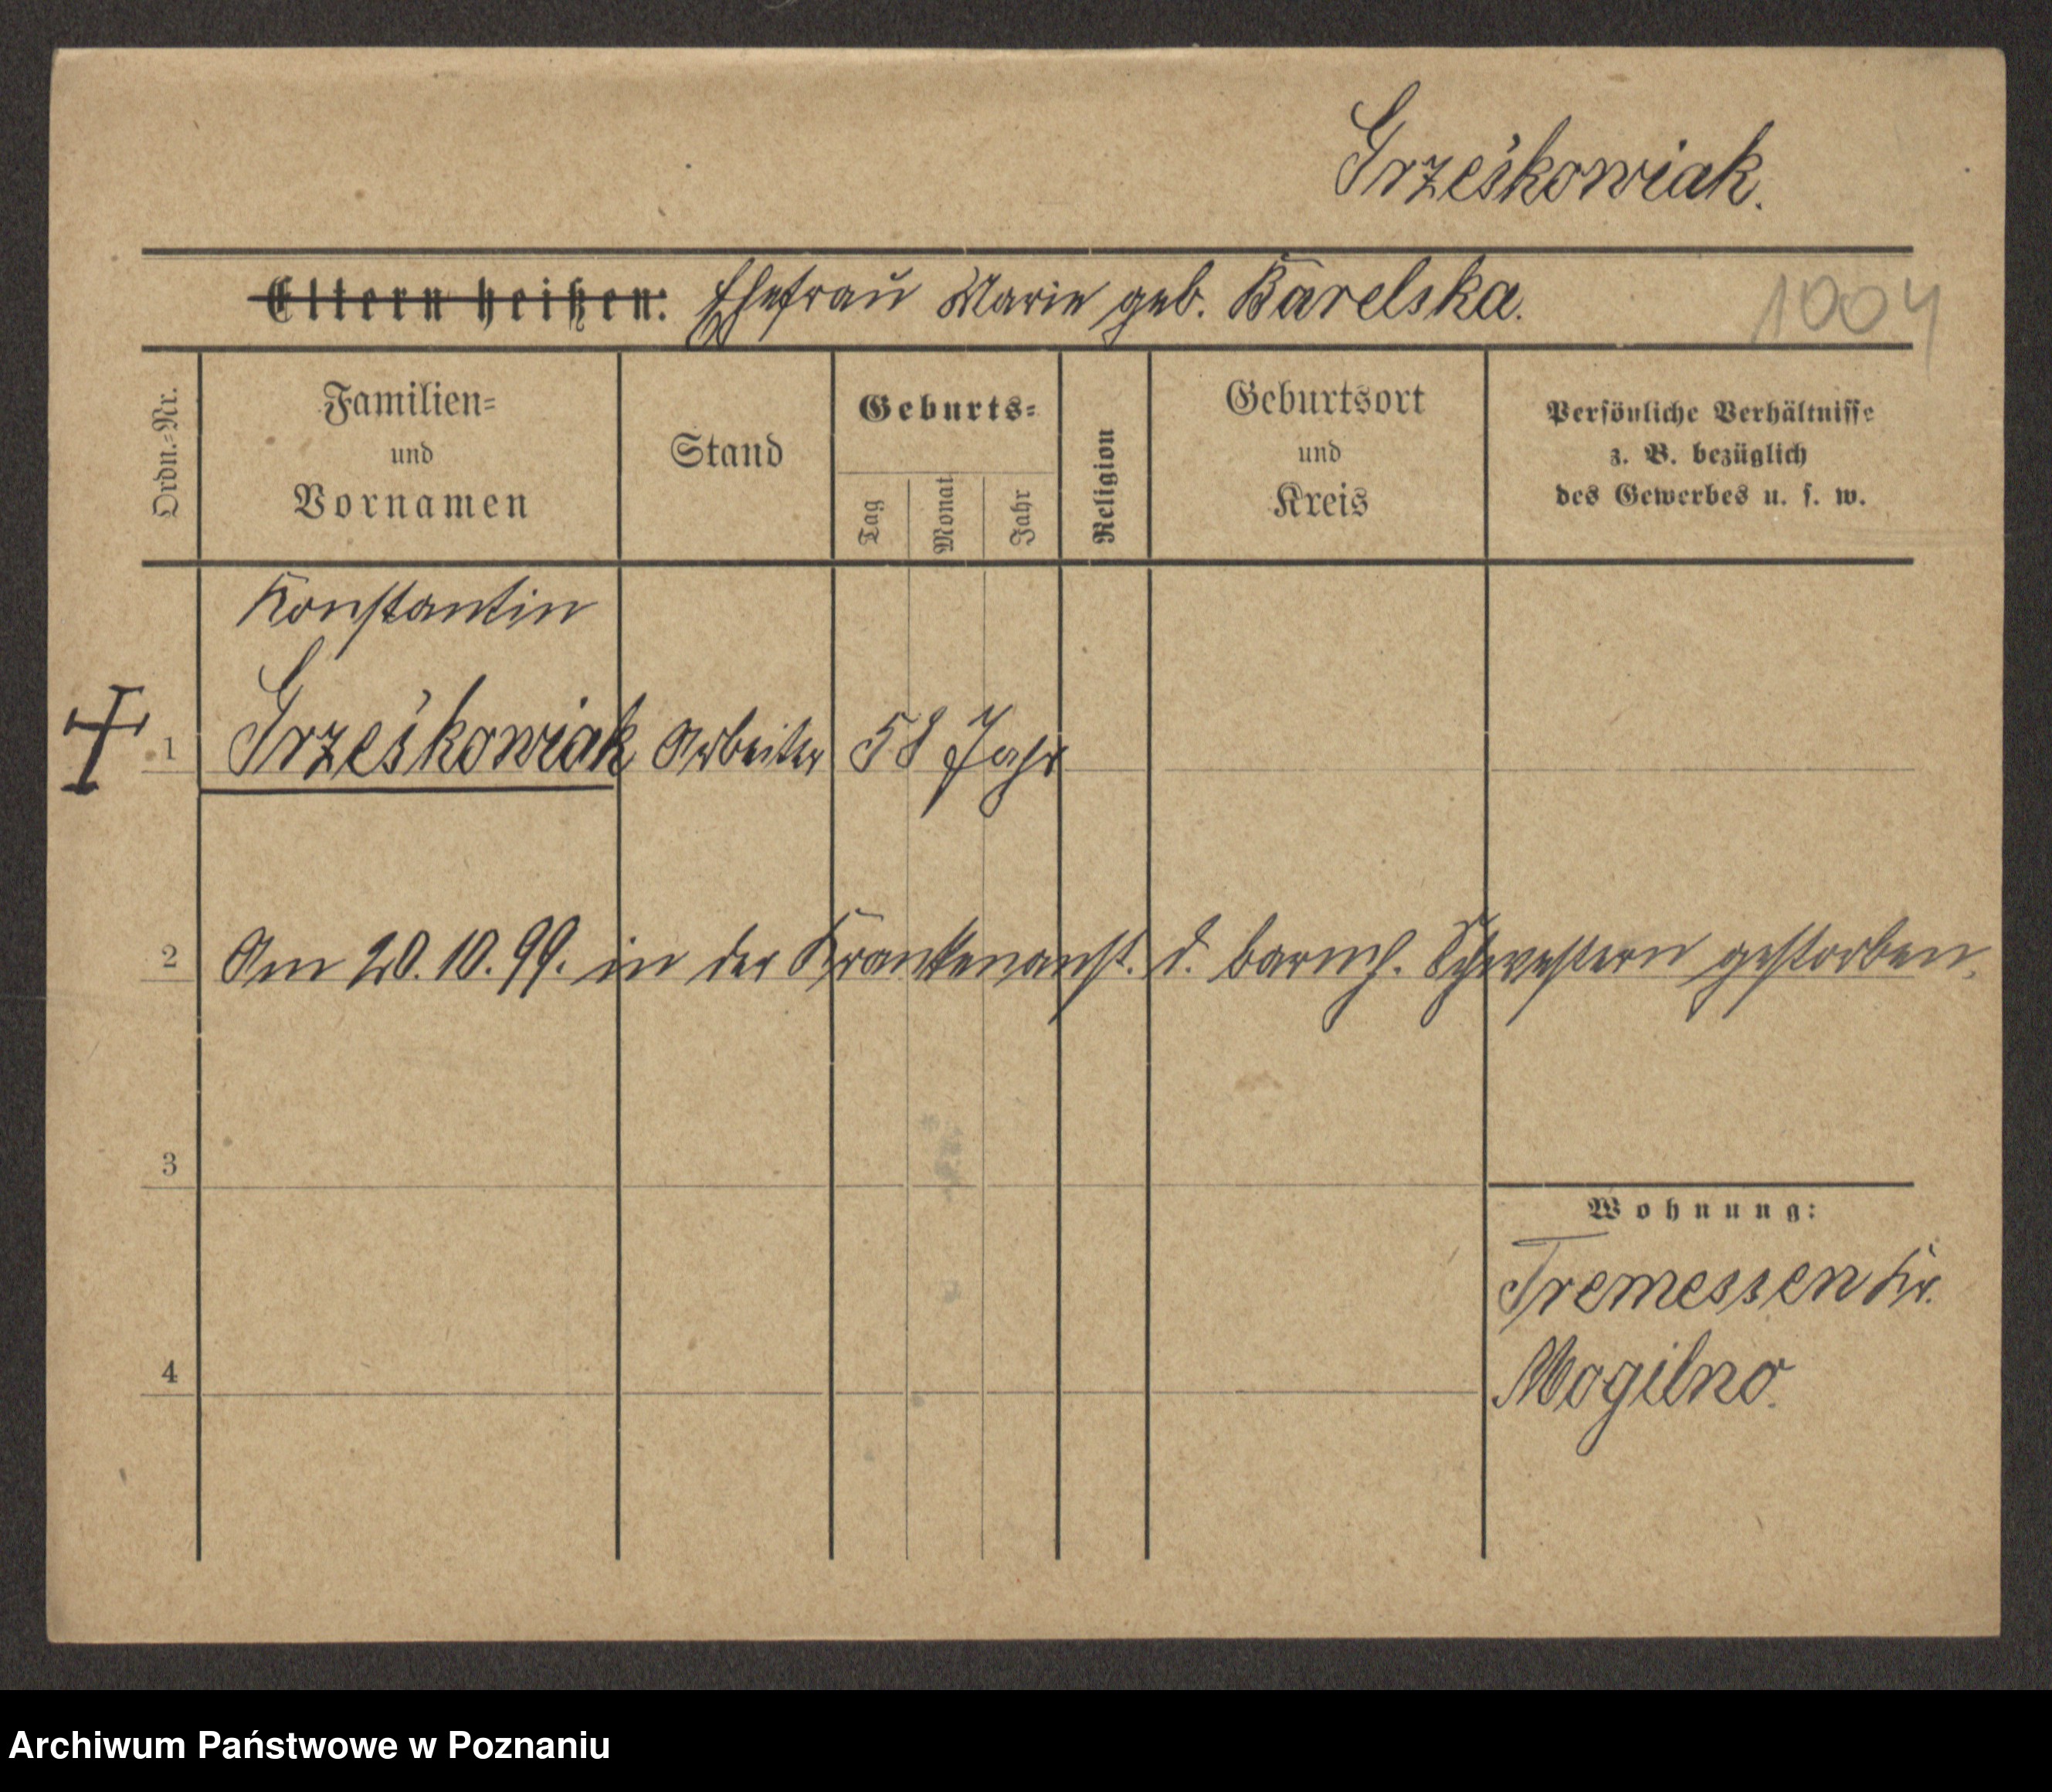 Grześkowiak.
Eltern heißen: Ehefrau Marie geb. Barelska.
1004
Ordn.=Nr.
Familien=
und
Vornamen
Stand
Geburts=
Tag
Monat
Jahr
Religion
Geburtsort
und
Kreis
Persönliche Verhältnisse
z. B. bezüglich
des Gewerbes u. s. w.
Konstantin
1 Grześkowiak Arbeiter 58 Jahr
2 Am 20.10.99. in der Krankenanst. d. barmh. Schwestern gestorben.
3
Wohnung:
Tremessen Kr.
4
Mogilno.
Archiwum Państwowe w Poznaniu